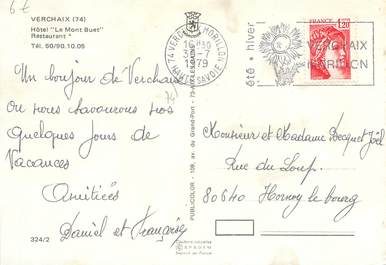 6€
VERCHAIX (74)
Hôtel "Le Mont Buet"
Restaurant *
Tél. 50/90.10.05
74 VERCHAIX MORILLON
16H30
3-7
1979
HAUTE SAVOIE
été • hiver
VERCHAIX
MORILLON
1,20
Un bonjour de Verchaix
où nous savourons nos
quelques jours de
Vacances
Amitiés
Daniel et Françoise
324/2
PUBLICOLOR - 109, av. du Grand-Port - 73-AIX-LES-BAINS
Monsieur et Madame Decquet Joël
Rue du Loup.
80640 Hornoy le bourg